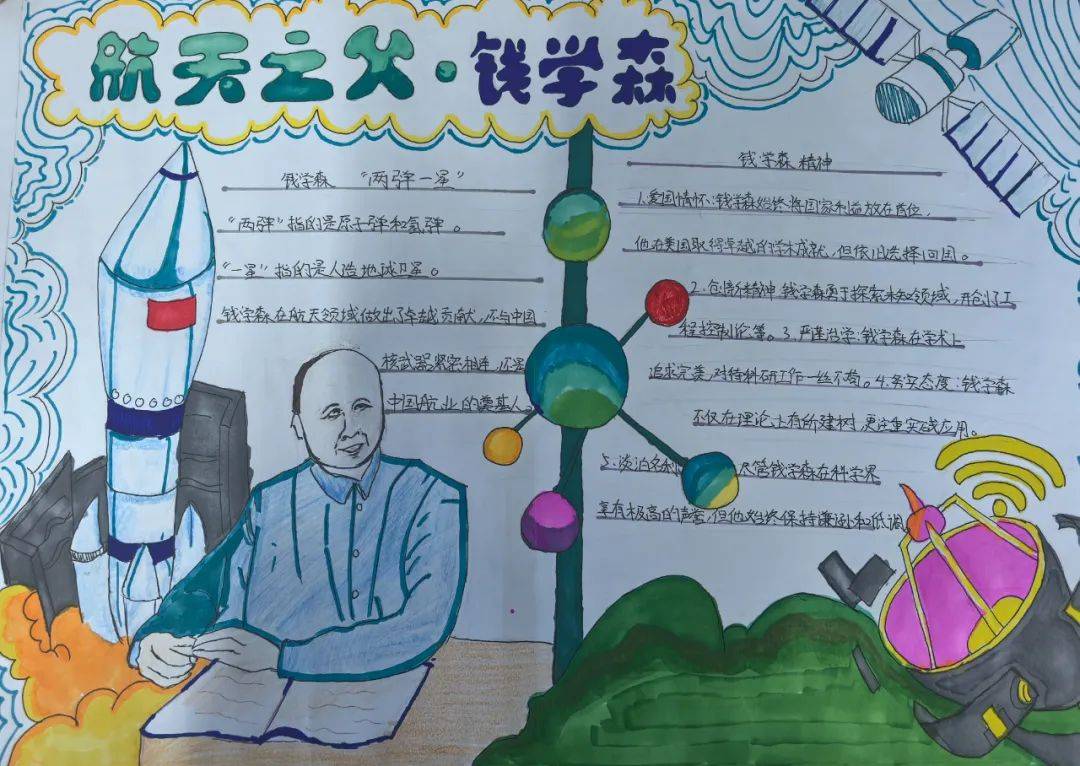 航天之父·钱学森
钱学森 “两弹一星”
“两弹”指的是原子弹和氢弹。
“一星”指的是人造地球卫星。
钱学森在航天领域做出了卓越贡献,不与中国
核武器紧密相连,还是
中国航业的奠基人。
钱学森精神
1.爱国情怀:钱学森始终将国家利益放在首位,
他在美国取得卓越的学术成就,但依旧选择回国。
2.创新精神:钱学森勇于探索未知领域,开创了工
程控制论等。3.严谨治学:钱学森在学术上
追求完美,对待科研工作一丝不苟。4.务实态度:钱学森
不仅在理论上有所建树,更注重实践应用。
5.淡泊名利 尽管钱学森在科学界
享有极高的声誉,但他始终保持谦逊和低调